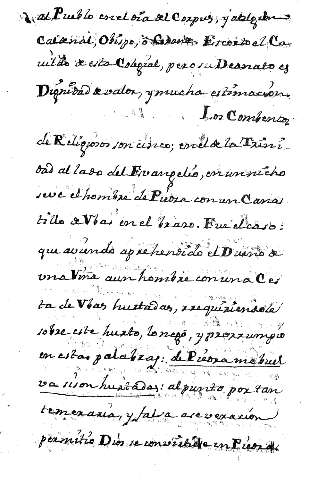 al Pueblo en el dia del Corpus, y algun
Cardenal, Obispo, ó Escoto el Ca
vildo de esta Colegial, pero su Deanato es
Dignidad de valor, y mucha estimacion.
Los Combentos
de Religiosos son cinco; en el de la Trini
dad al lado del Evangelio, en un nicho
se ve el hombre de Piedra con un Canas
tillo de Vbas en el brazo. Fue el caso:
que aviendo aprehendido el Dueño de
vna Viña a un hombre con una Ces
ta de Vbas hurtadas, rrequiriendole
sobre este hurto, lo negó, y prorrumpio
en estas palabras: de Piedra me buel
va si son hurtadas: al punto por tan
temeraria, y falsa aseveracion
permitio Dios se convirtiese en Piedra